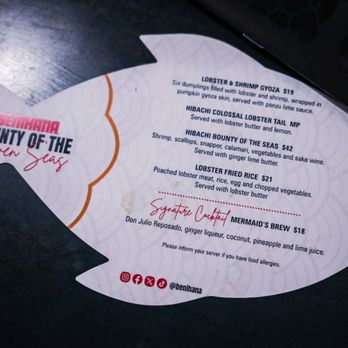 BENIHANA
NTY OF THE
en Seas
LOBSTER & SHRIMP GYOZA $19
Six dumplings filled with lobster and shrimp, wrapped in
pumpkin gyoza skin, served with ponzu lime sauce.
HIBACHI COLOSSAL LOBSTER TAIL MP
Served with lobster butter and lemon.
HIBACHI BOUNTY OF THE SEAS $42
Shrimp, scallops, snapper, calamari, vegetables and sake wine.
Served with ginger lime butter.
LOBSTER FRIED RICE $21
Poached lobster meat, rice, egg and chopped vegetables.
Served with lobster butter.
Signature Cocktail MERMAID'S BREW $18
Don Julio Reposado, ginger liqueur, coconut, pineapple and lime juice.
Please inform your server if you have food allergies.
@benihana